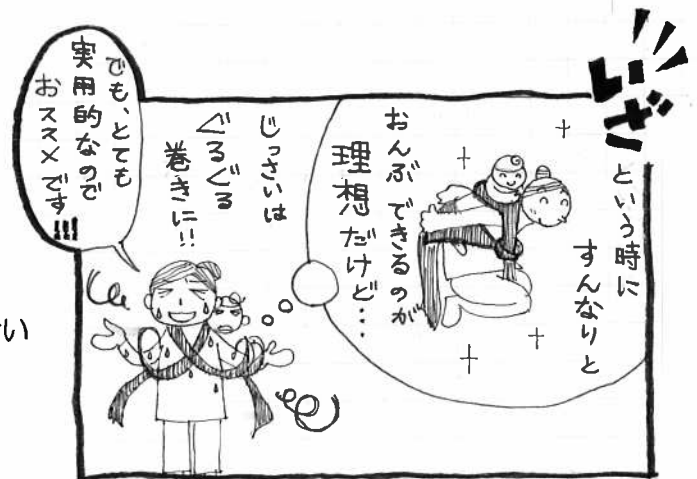 いざ
という時に
すんなりと
おんぶできるのが
理想だけど…
じっさいは
ぐるぐる
巻きに!!
でも、とても
実用的なので
おススメです!!!
い